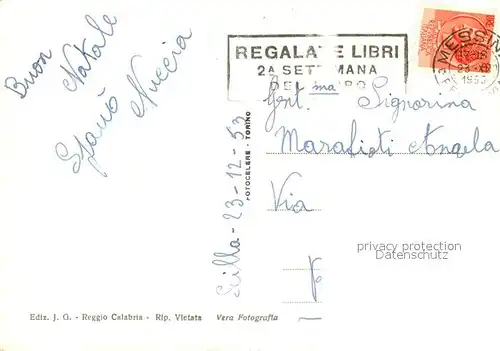 Buon
Natale
Nuccia
REGALATE LIBRI
2A SETTIMANA
DEL LIBRO
MESSINA
1953
Gent.ma Signorina
Marafioti Angela
Via
Scilla - 23-12-53
FOTOCELERE - TORINO
privacy protection
Datenschutz
Ediz. J. G. - Reggio Calabria - Rip. Vietata Vera Fotografia